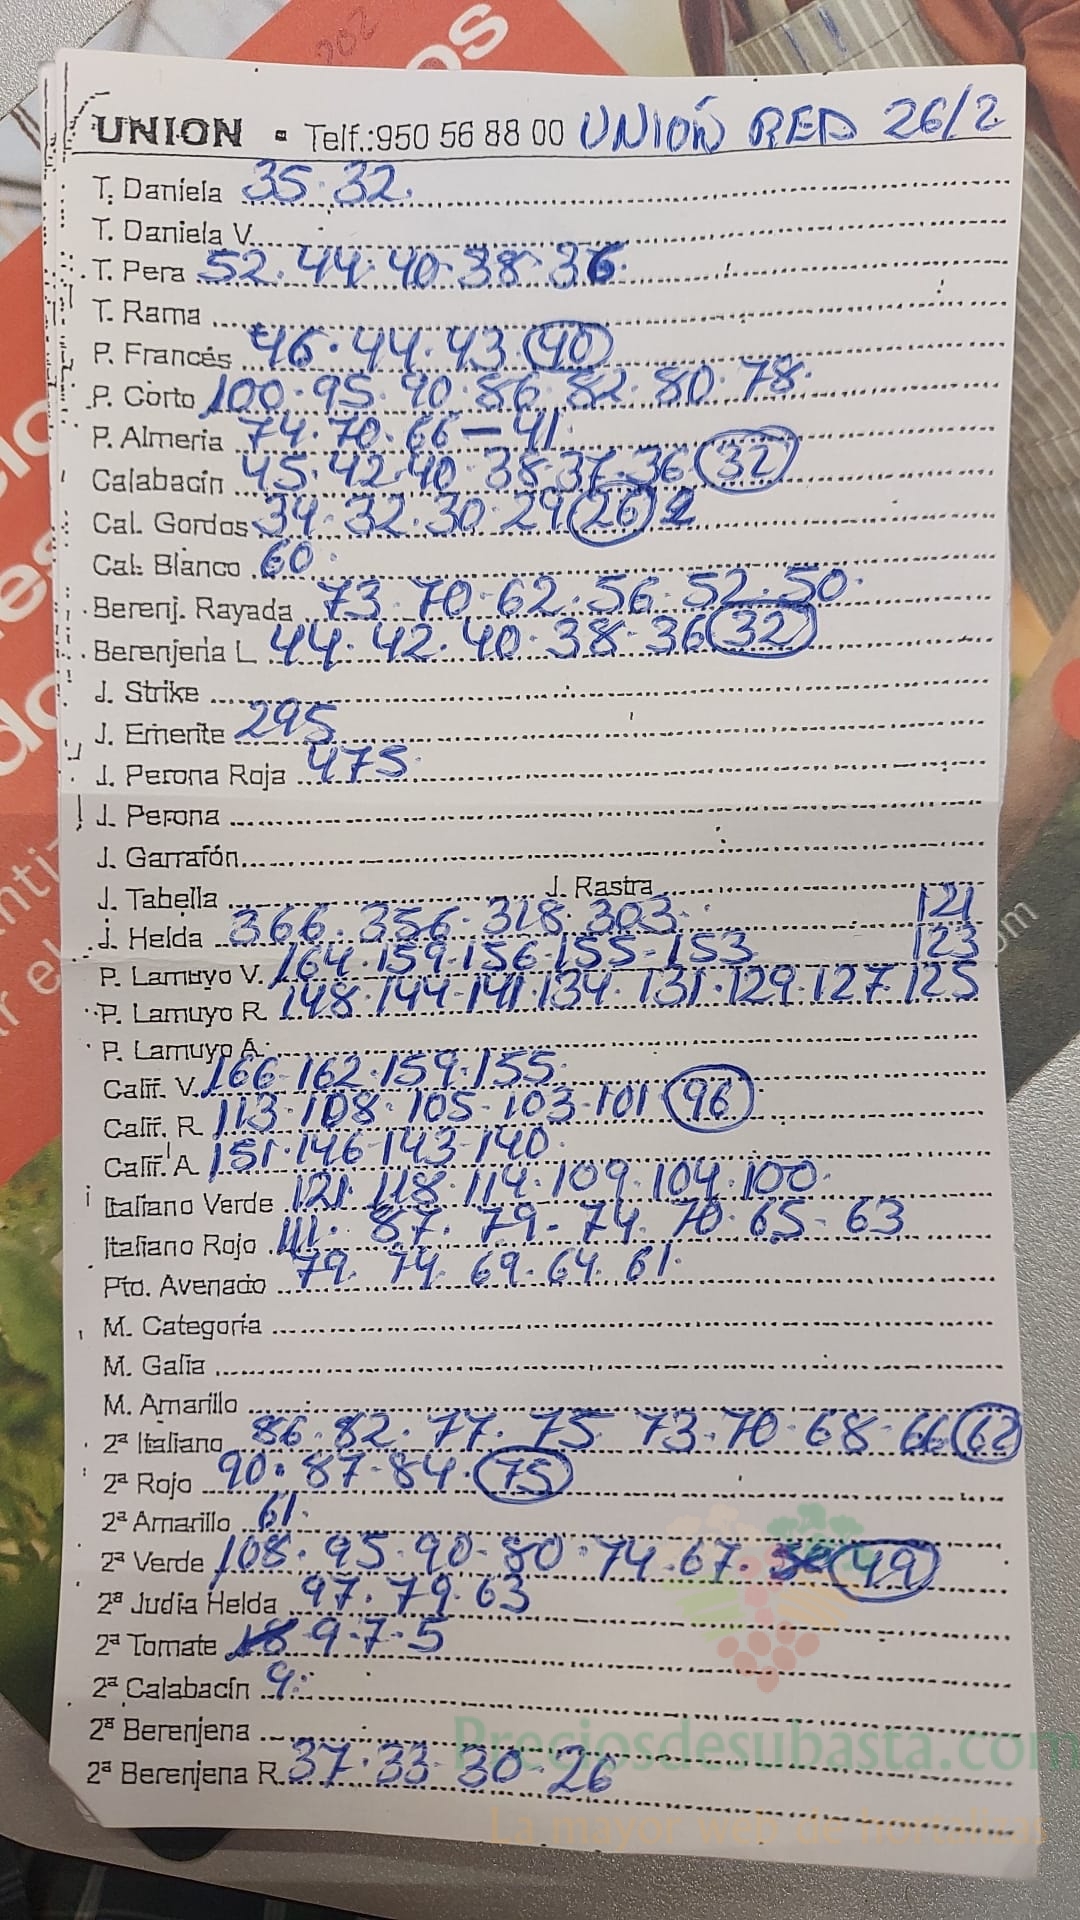 UNION - Telf.:950 56 88 00 UNIÓN RED 26/2
T. Daniela 35. 32.
T. Daniela V.
T. Pera 52. 44. 40. 38. 36.
T. Rama
P. Francés 46. 44. 43. 40
P. Corto 100. 95. 90. 86. 82. 80. 78.
P. Almeria 74. 70. 66 - 41.
Calabacín 45. 42. 40. 38. 37. 36 32
Cal. Gordos 34. 32. 30. 29 26 2
Cal. Blanco 60.
Berenj. Rayada 73. 70. 62. 56. 52. 50.
Berenjena L 44. 42. 40. 38. 36 32
J. Strike
J. Emerite 295
J. Perona Roja 475
J. Perona
J. Garrafón
J. Tabella J. Rastra
J. Helda 366. 356. 318. 303. 121
P. Lamuyo V. 164. 159. 156. 155. 153 123
P. Lamuyo R. 148. 144. 141. 134. 131. 129. 127. 125
P. Lamuyo A.
Calif. V. 166. 162. 159. 155.
Calif. R. 113. 108. 105. 103. 101 96
Calif. A 151. 146. 143. 140
Italiano Verde 121. 118. 114. 109. 104. 100.
Italiano Rojo 111. 87. 79. 74. 70. 65. 63
Pto. Avenado 79. 74. 69. 64. 61.
M. Categoria
M. Galia
M. Amarillo
2ª Italiano 86. 82. 77. 75 73. 70. 68. 66 62
2ª Rojo 90. 87. 84. 75
2ª Amarillo 61.
2ª Verde 108. 95. 90. 80. 74. 67. 49
2ª Judia Helda 97. 79. 63
2ª Tomate 9. 7. 5
2ª Calabacín 9.
2ª Berenjena
2ª Berenjena R. 37. 33. 30. 26
Preciosdesubasta.com
La mayor web de hortalizas